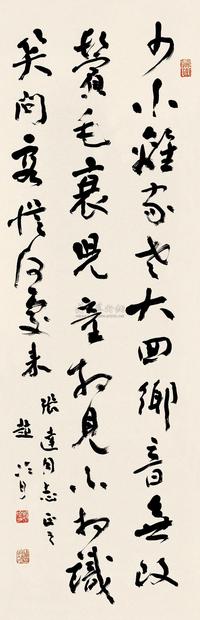 少小離家老大回鄉音無改
鬢毛衰兒童相見不相識
笑問客從何處來
張達同志正之
趙冷月